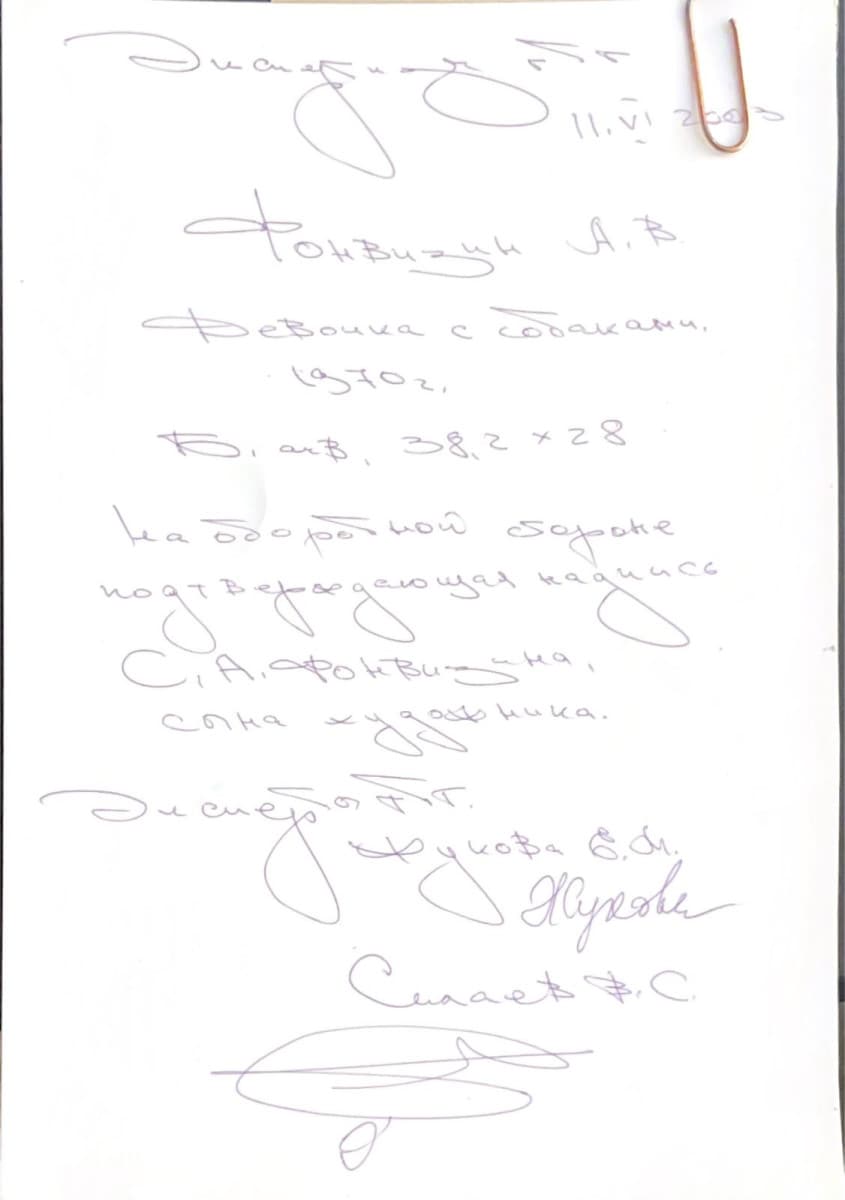 Экспертиза ГТГ
11.VI 2003
Фонвизин А.В.
Девочка с собаками.
1970 г.
Б., акв., 38,2 × 28
На оборотной стороне
подтверждающая надпись
С.А. Фонвизина,
сына художника.
Эксперты ГТГ.
Жукова Е.М.
Жукова
Силаев В.С.